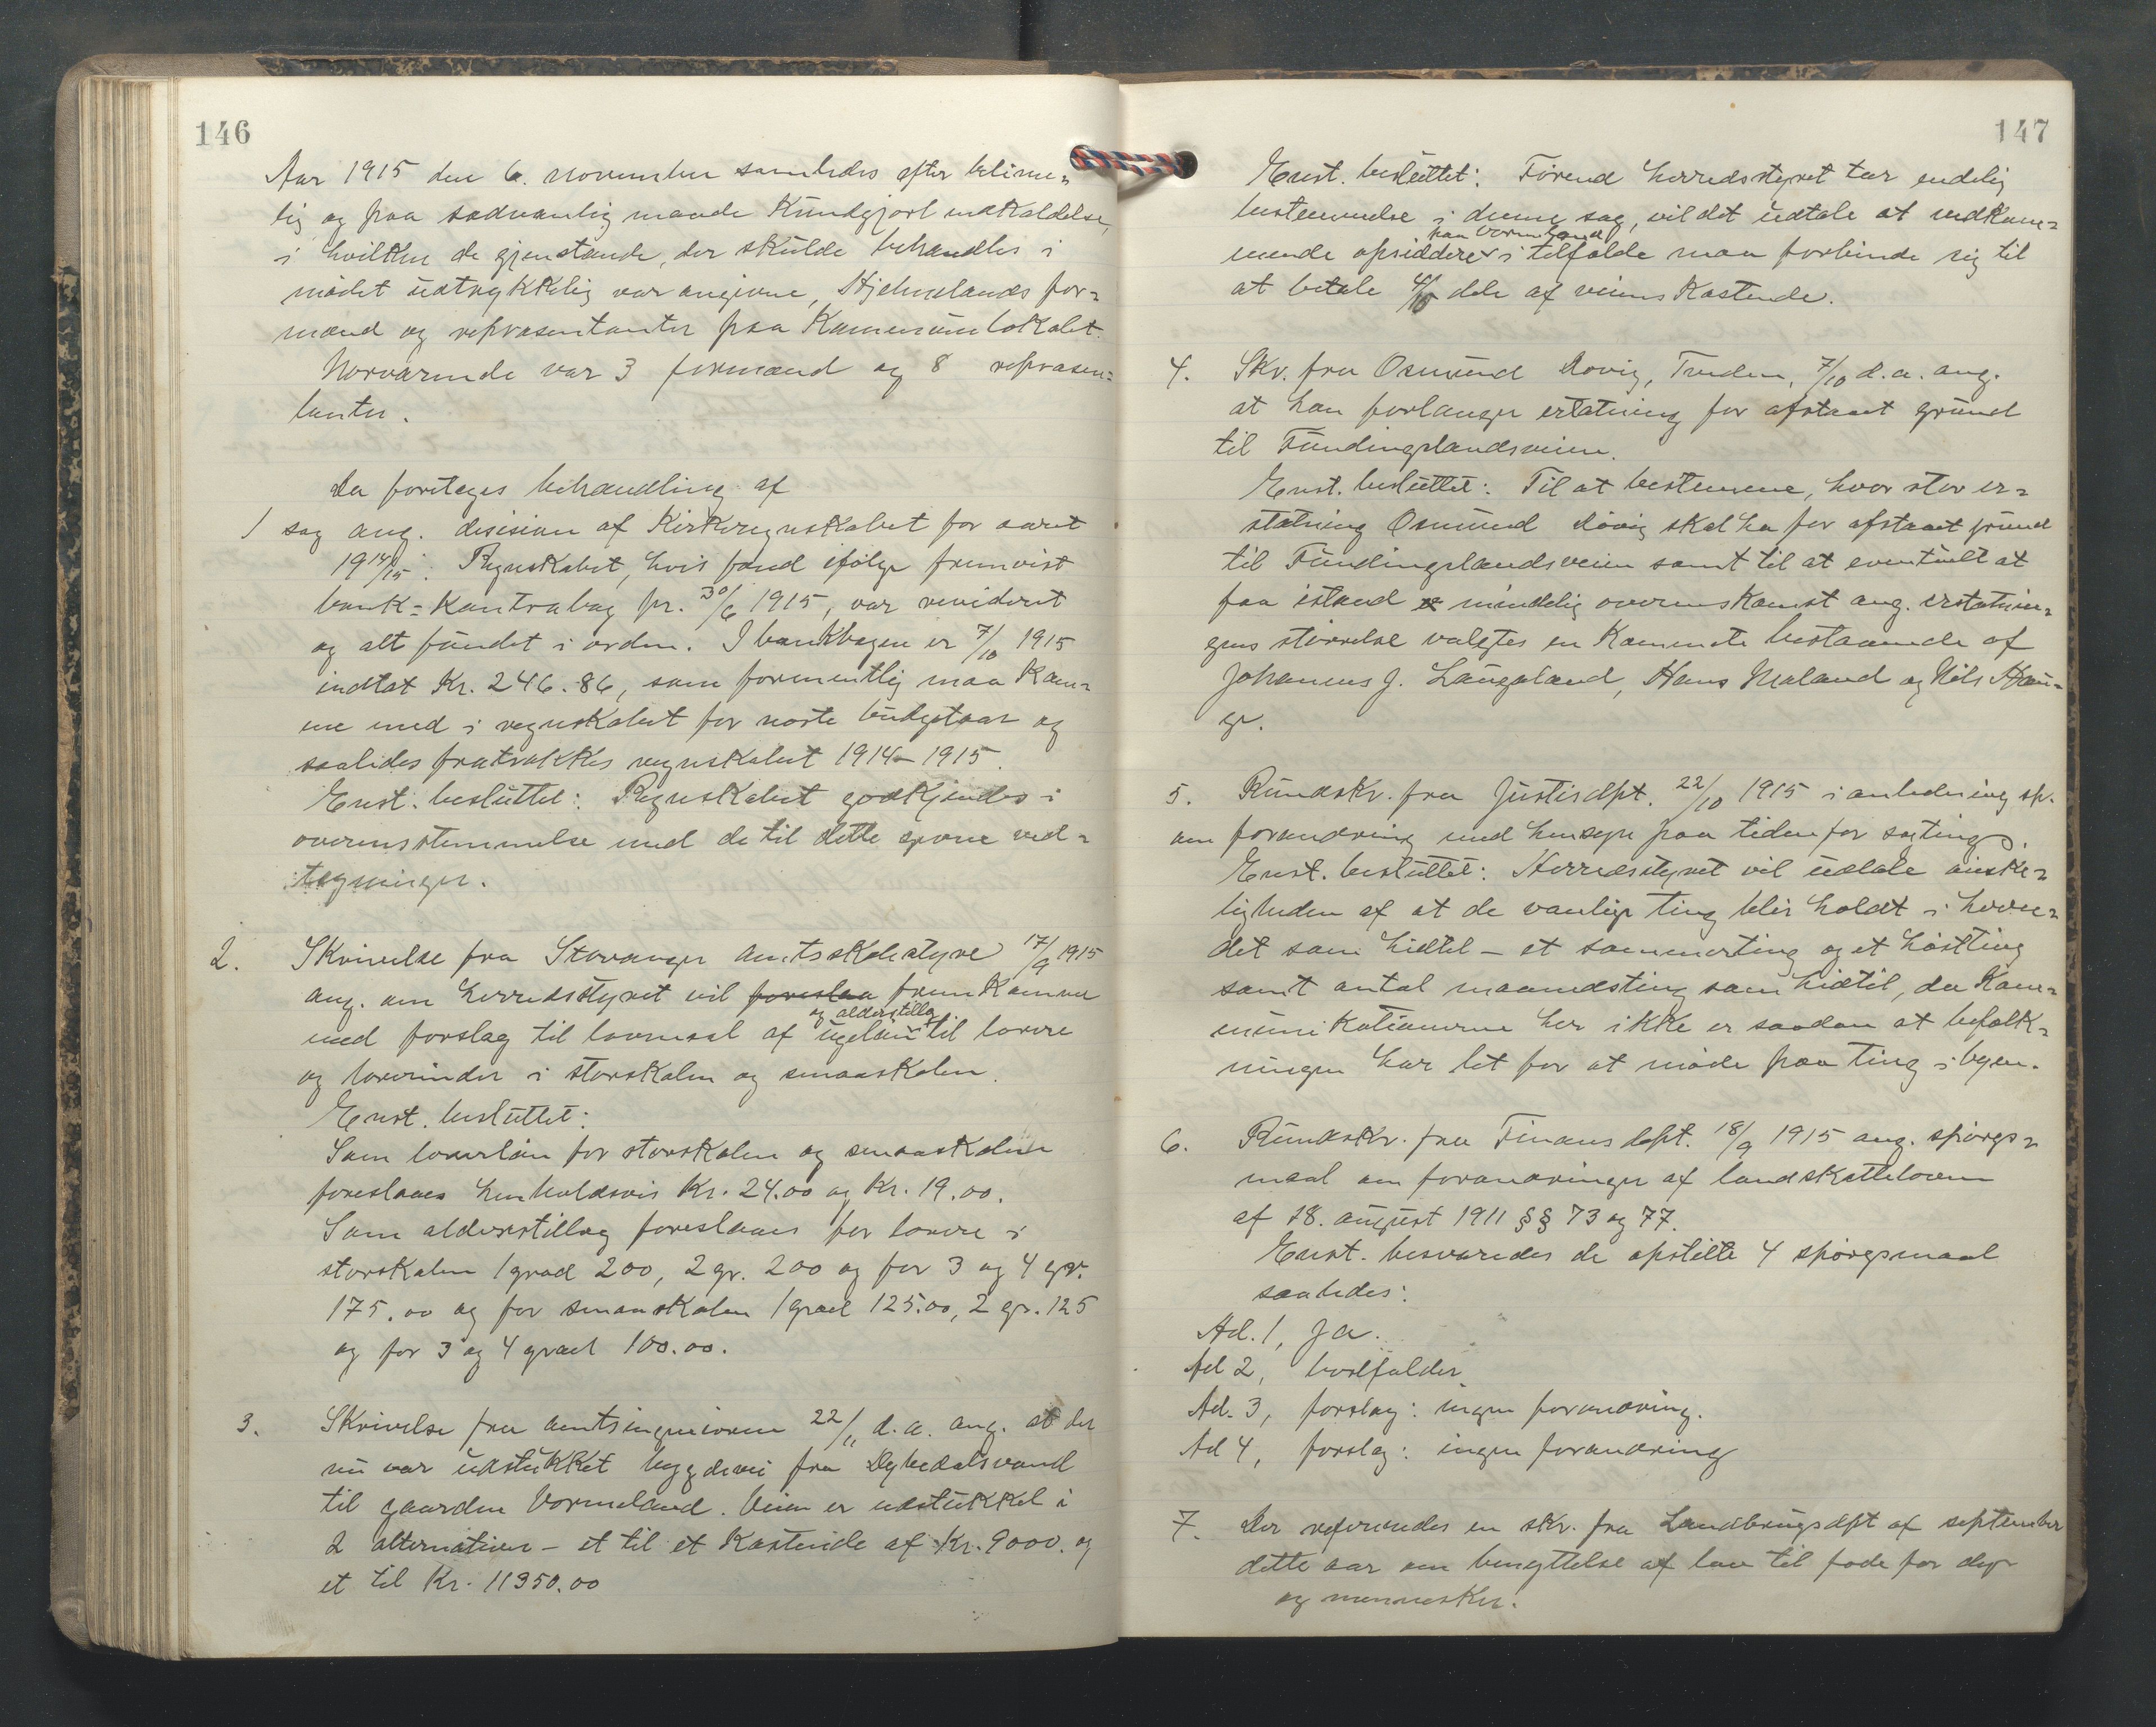 146
Aar 1915 den 6. november samledes efter betime-
lig og paa sædvanlig maade Kundgjort indkaldelse,
i hvilken de gjenstande, der skulde behandles i
mødet udtrykkelig var angivne, Hjelmelands for-
mænd og repræsentanter paa Kommunelokalet.
Nærværende var 3 formænd og 8 repræsen-
tanter.
Da foretages behandling af
1 sag ang. desision af Kirkeregnskabet for aaret
1914/15. Regnskabet, hvis fond ifølge fremvist
bank-Kontrabog pr. 30/6 1915, var revideret
og alt fundet i orden. I bankbogen er 7/10 1915
indtat Kr. 246.86, som formentlig maa Kom-
me med i regnskabet for næste budgetaar og
saaledes fratrækkes regnskabet 1914-1915.
Enst. besluttet: Regnskabet godkjendes i
overensstemmelse med de til dette gjorte ved-
tegninger.
2. Skrivelse fra Stavanger Amtsskolestyre 17/9 1915
ang. om herredsstyret vil foreslaa fremkomme
og alderstillæg
med forslag til lovmaal af ugeløn til lærere
og lærerinder i storskolen og smaaskolen.
Enst. besluttet:
Som lærerløn for storskolen og smaaskolen
foreslaaes henholdsvis Kr. 24.00 og Kr. 19.00.
Som alderstillæg foreslaaes for lærere i
storskolen 1 grad 200, 2 gr. 200 og for 3 og 4 gr.
175.00 og for smaaskolen 1 grad 125.00, 2 gr. 125
og for 3 og 4 grad 100.00.
3. Skrivelse fra amtsingeniøren 22/11 d.a. ang. at der
nu var udstukket bygdevei fra Dybedalsvand
til gaarden Vormeland. Veien er udstukket i
2 alternativer - et til et Kostende af Kr. 9000. og
et til Kr. 11350.00
147
Enst. besluttet: Førend herredsstyret tar endelig
bestemmelse i denne sag, vil det udtale at vedkom-
paa Vormeland
mende opsiddere i tilfælde maa forbinde sig til
at betale 4/10 dele af veiens Kostende.
4. Skr. fra Osmund Døvig, 7/10 d.a. ang.
at han forlanger erstatning for afstaaet grund
til Fundingslandsveien.
Enst. besluttet: Til at bestemme, hvor stor er-
statning Osmund Døvig skal ha for afstaaet grund
til Fundingslandsveien samt til at eventuelt at
faa istand mindelig overenskomst ang. erstatnin-
gens størrelse valgtes en Komite bestaaende af
Johannes J. Laugaland, Hans Meland og Nils Hau-
ge.
5. Rundskr. fra Justisdpt. 22/10 1915 i anledning sp.
om forandring med hensyn paa tiden for sagting.
Enst. besluttet: Herredsstyret vil udtale ønske-
ligheden af at de vanlige ting blir holdt i hove-
det som hidtil - et sommerting og et høstting
samt antal maanedsting som hidtil, da Kom-
munikationerne her ikke er saadan at befolk-
ningen har let for at møde paa ting i byen.
6. Rundskr. fra Finansdept. 18/9 1915 ang. spørgs-
maal om forandringer af landskatteloven
af 18. august 1911 §§ 73 og 77.
Enst. besvaredes de opstilte 4 spørgsmaal
saaledes:
Ad. 1, Ja.
Ad 2, bortfalder
Ad. 3, forslag: ingen forandring.
Ad 4, forslag: ingen forandring
7. Der refereredes en skr. fra Landbrugsdpt af september
dette aar om benyttelse af lav til føde for dyr
og mennesker.